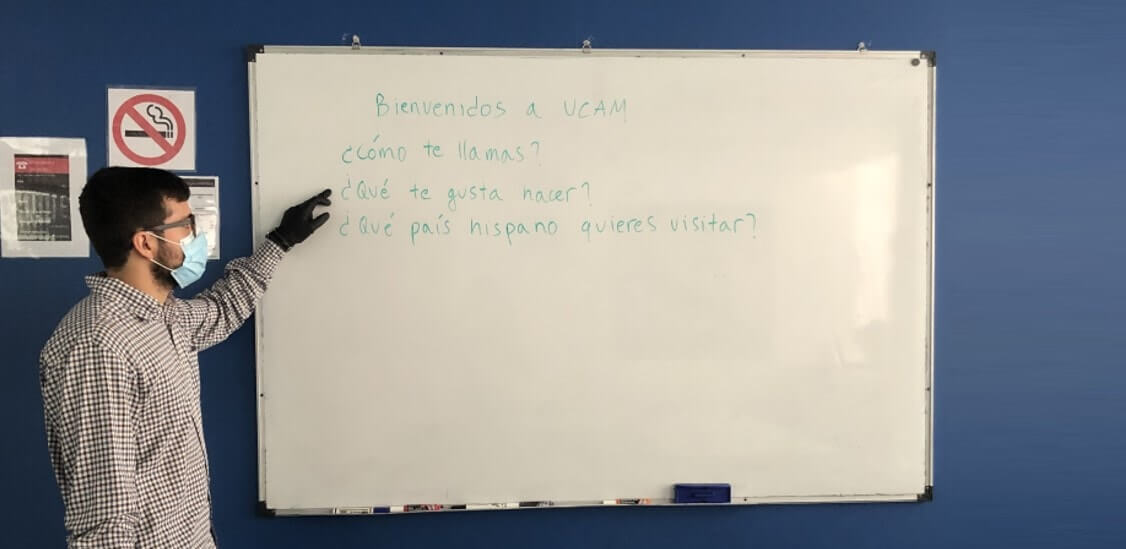 Bienvenidos a UCAM
¿Cómo te llamas?
¿Qué te gusta hacer?
¿Qué país hispano quieres visitar?